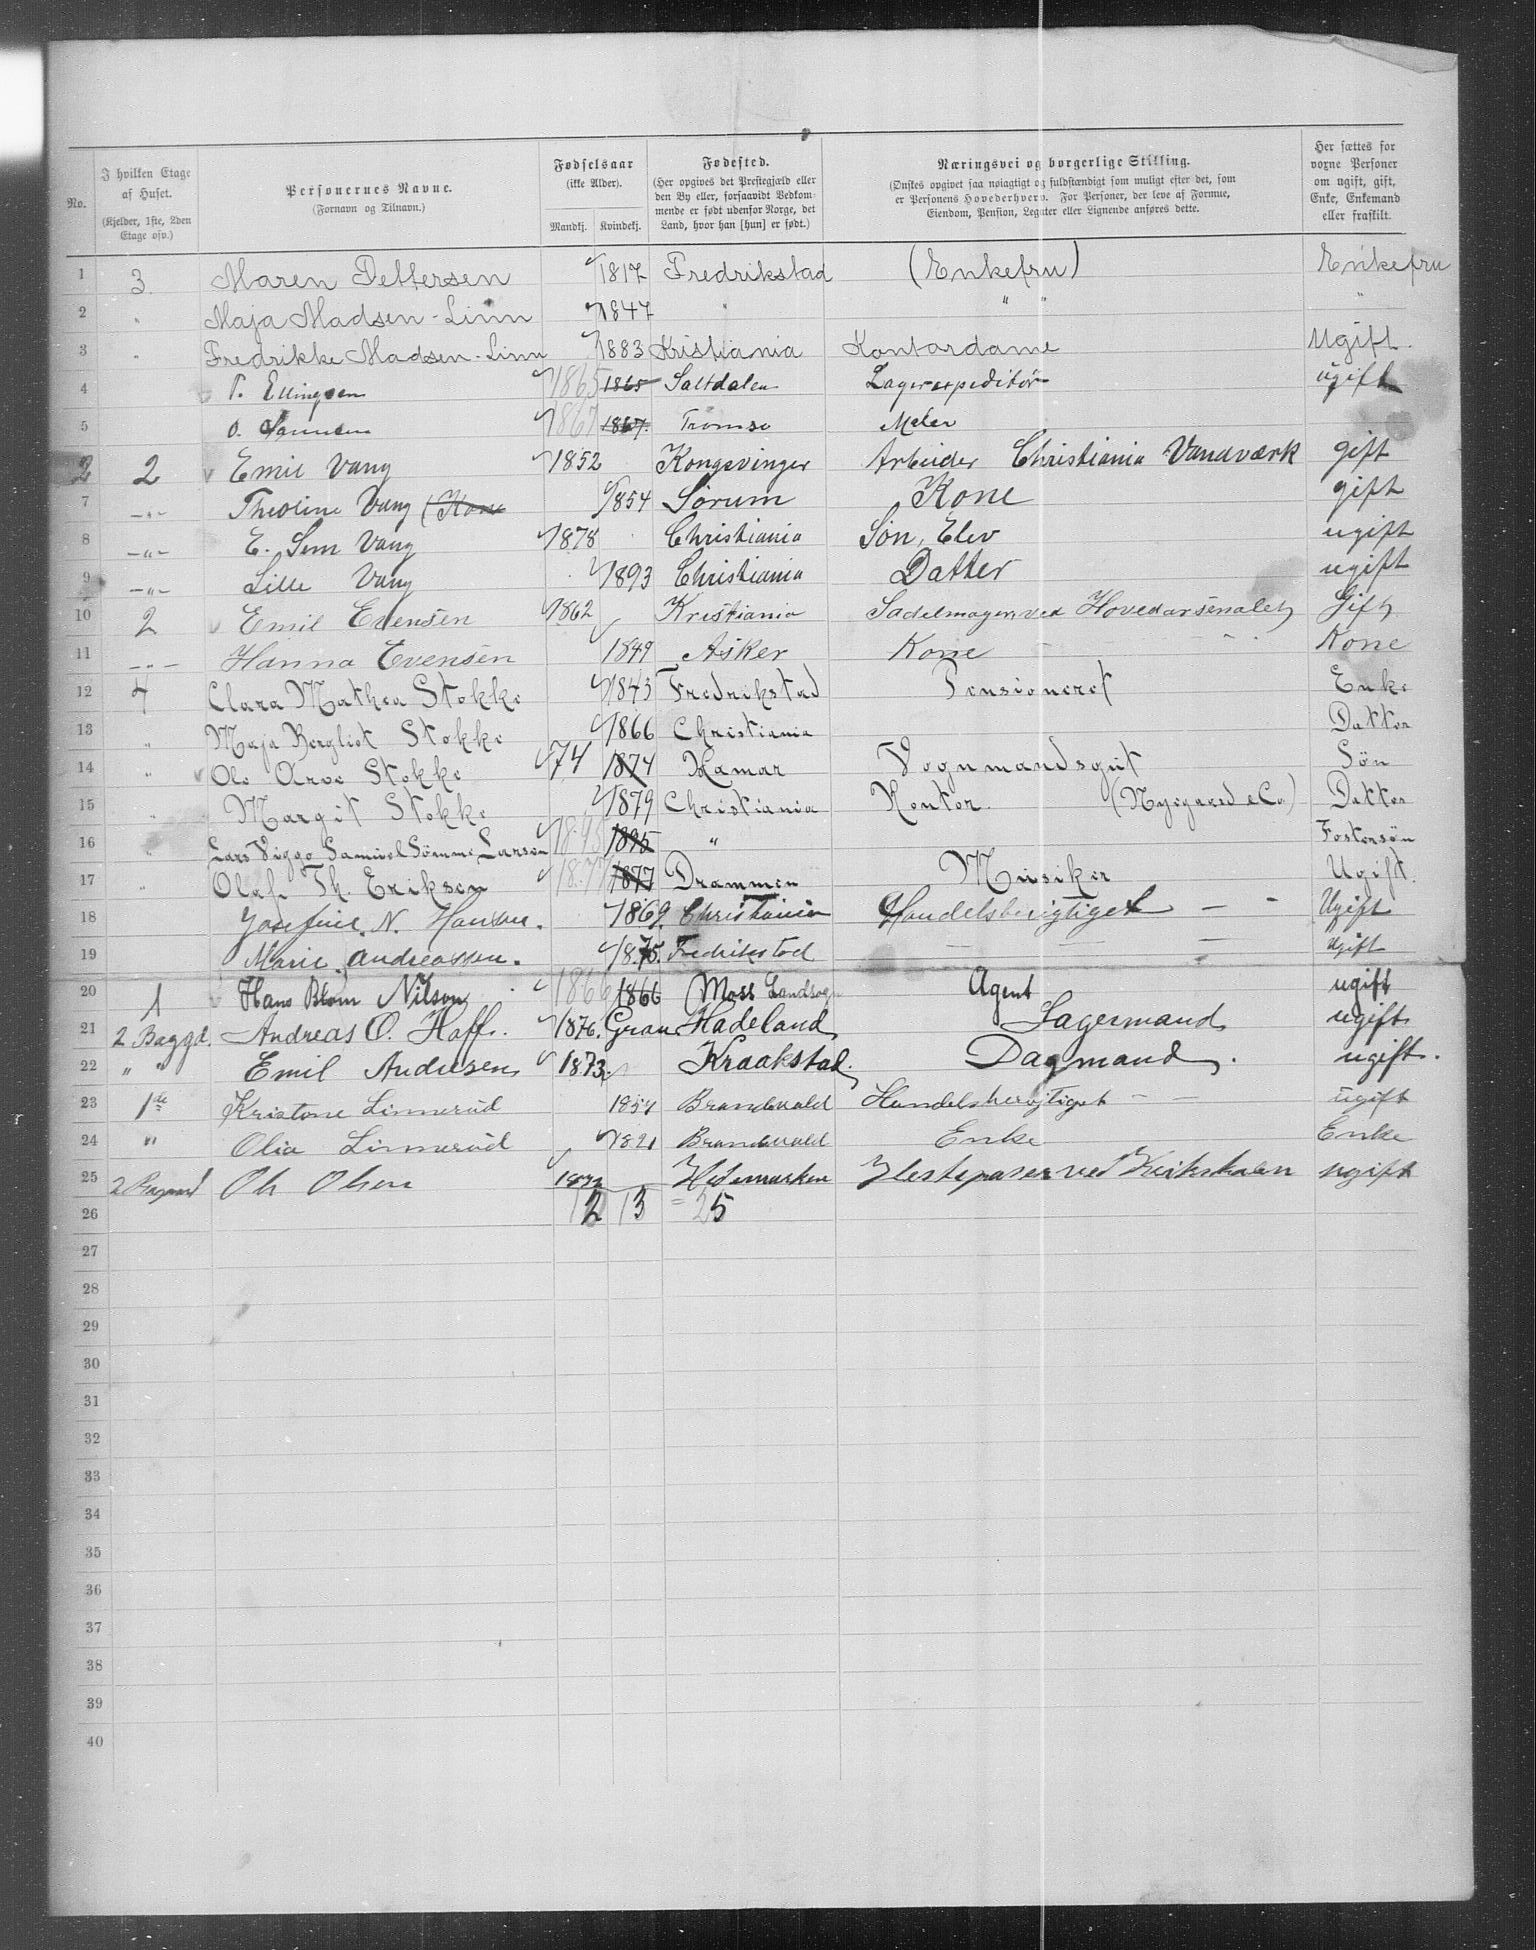 No.
I hvilken Etage af Huset. (Kjelder, 1ste, 2den Etage osv.)
Personernes Navne. (Fornavn og Tilnavn.)
Fødselsaar (ikke Alder). Mandkj. Kvindekj.
Fødested. (Her opgives det Prestegjæld eller den By eller, forsaavidt Vedkommende er født udenfor Norge, det Land, hvor han [hun] er født.)
Næringsvei og borgerlige Stilling. (Ønskes opgivet saa nøiagtigt og fuldstændigt som muligt efter det, som er Personens Hovederhverv. For Personer, der leve af Formue, Eiendom, Pension, Legater eller Lignende anføres dette.
Her sættes for voxne Personer om ugift, gift, Enke, Enkemand eller fraskilt.
1 3 Maren Pettersen 1817 Fredrikstad (Enkefru) Enkefru
2 " Maja Madsen-Linn 1847 " " " "
3 " Fredrikke Madsen-Linn 1883 Kristiania Kontordame Ugift.
4 P. Ellingsen 1865 1865 Saltdalen Lagerexpeditør ugift
5 O. 1867 1867. Tromsø Maler
2 2 Emil Vang 1852 Kongsvinger Arbeider Christiania Vandværk gift
7 -"- Theoline Vang (Kone 1854 Sørum Kone gift
8 -"- E. Sem Vang 1878 Christiania Søn, Elev ugift
9 -"- Lille Vang 1893 Christiania Datter ugift
10 2 Emil Evensen 1862 Kristiania Sadelmager ved Hovedarsenalet Gift
11 -"- Hanna Evensen 1849 Asker Kone Kone
12 4 Clara Mathea Stokke 1843 Fredrikstad Pensioneret Enke
13 " Maja Bergliot Stokke 1866 Christiania Datter
14 " Ole Arve Stokke 74 1874 Hamar Vognmandsgut Søn
15 " Margit Stokke 1879 Christiania Kontor. (Nyegaard & Co.) Datter
16 " Lars Viggo Samuel Sömme Larsen 1895 1895 " Fostersøn
17 " Olaf Th. Eriksen 1877 1877 Drammen Musiker Ugift.
18 Josefine N. Hansen. 1869. Christiania Handelsberigtiget — - Ugift
19 Marie Andreassen. 1875. Fredrikstad — — — Ugift
20 1 Hans Blom Nilsen 1866 1866 Moss Landsogn Agent ugift
21 2 Baggd. Andreas O. Hoff. 1876. Gran Hadeland Lagermand ugift
22 " " Emil Andresen 1873. Kraakstad. Dagmand. ugift.
23 1de Kristone Linnerud 1854 Brandvold Handelsberegtiget — — ugift
24 " Olia Linnerud 1821 Brandvold Enke Enke
25 2 Bagaard Ole Olsen Hedemarken ved ugift
26 12 13 = 25
27
28
29
30
31
32
33
34
35
36
37
38
39
40